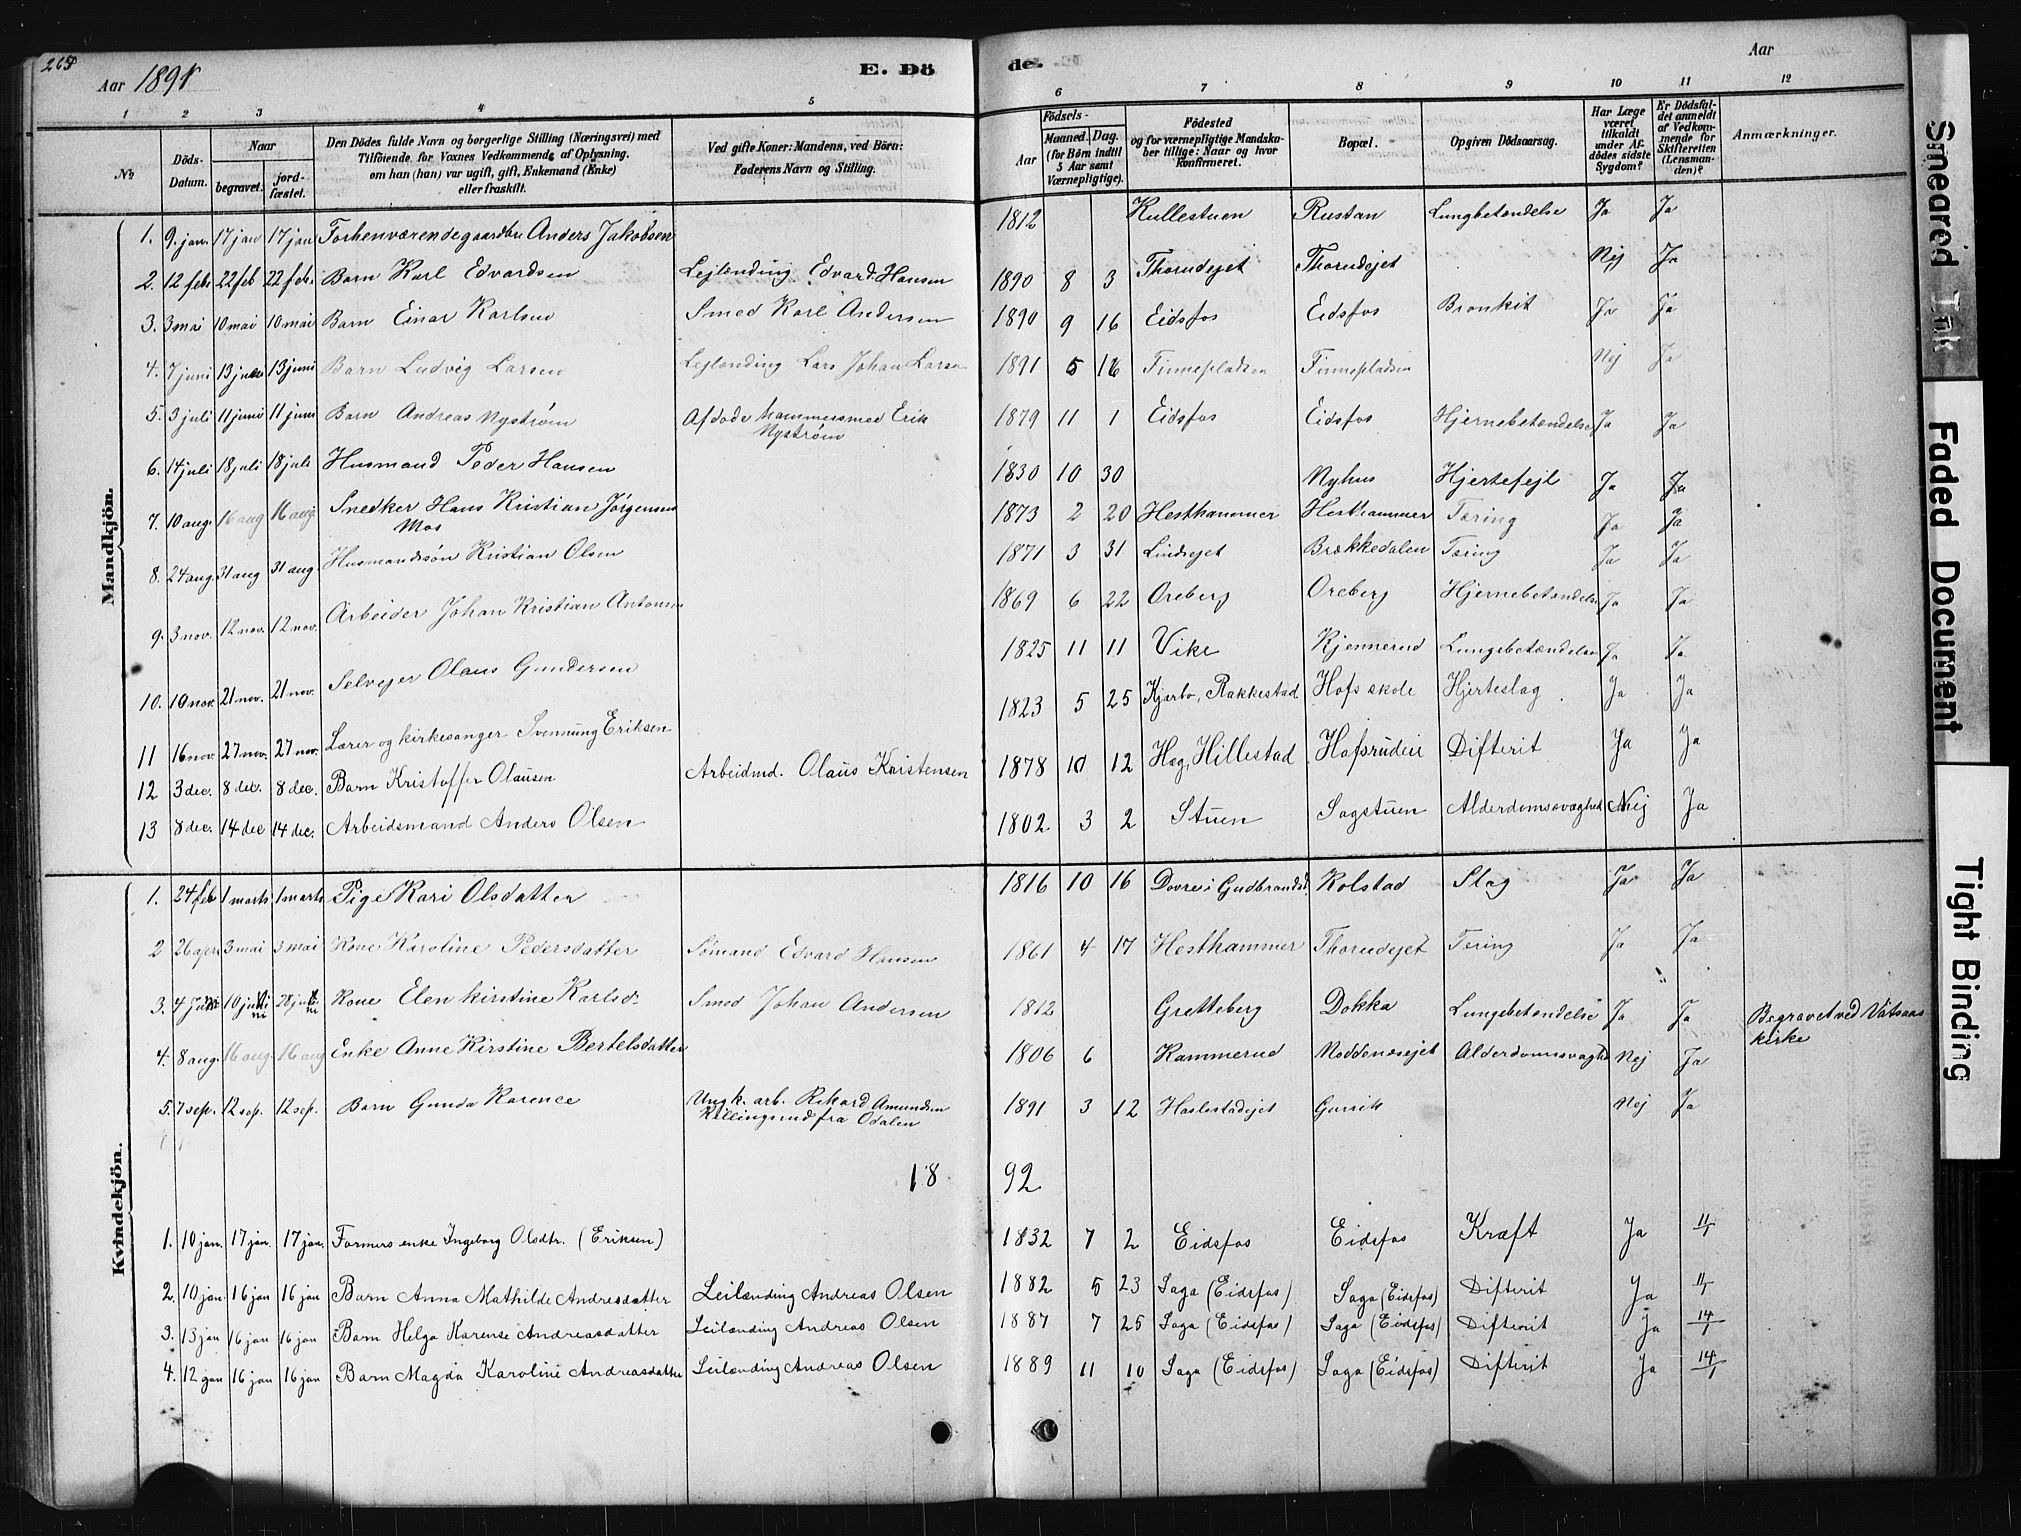 268
Aar 1891
E. Dö de.
Aar
1 2 3 4 5 6 7 8 9 10 11 12
No
Döds-Datum.
Naar begravet. jord-fæstet.
Den Dödes fulde Navn og borgerlige Stilling (Næringsvei) med Tilföiende for Voxnes Vedkommende af Oplysning, om han (hun) var ugift, gift, Enkemand (Enke) eller fraskilt.
Ved gifte Koner: Mandens, ved Börn: Faderens Navn og Stilling.
Födsels- Aar Maaned. Dag. (for Börn indtil 5 Aar samt Værnepligtige).
Födested og for værnepligtige Mandskaber tillige: Naar og hvor Konfirmeret.
Bopæl.
Opgiven Dödsaarsag.
Har Læge været tilkaldt under Afdödes sidste Sygdom?
Er Dödsfaldet anmeldt af Vedkommende for Skifteretten (Lensmanden)?
Anmærkninger.
Mandkjön.
1. 9. jan. 17 jan 17 jan Forhenværende gaardbr Anders Jakobsen 1812 Kullestuen Rustan Lungbetændelse Ja Ja
2. 12 feb. 22 feb 22 feb. Barn Karl Edvardsen Lejlending Edvard Hansen 1890 8 3 Thorudejet Thorudejet Nej Ja
3. 3 mai 10 mai 10 mai Barn Einar Karlsen Smed Karl Andersen 1890 9 16 Eidsfos Eidsfos Bronkit Ja Ja
4. 7 juni 13 juni 13 juni Barn Ludvig Larsen Lejlending Lars Johan Larsen 1891 5 16 Finnepladsen Finnepladsen Nej Ja
5. 3 juli 11 juni 11 juni Barn Andreas Nystrøm Afdøde hammersmed Erik Nystrøm 1879 11 1 Eidsfos Eidsfos Hjernebetændelse Ja Ja
6. 14 juli 18 juli 18 juli Husmand Peder Hansen 1830 10 30 Nyhus Hjertefejl Ja Ja
7. 10 aug. 16 aug 16 aug. Snedker Hans Kristian Jørgensen Mos 1873 2 20 Hesthammer Hesthammer Tæring Ja Ja
8. 24 aug. 31 aug 31 aug. Husmandssøn Kristian Olsen 1871 3 31 Lindsejet Brækkedalen Tæring Ja Ja
9. 3 nov. 12 nov. 12 nov. Arbeider Johan Kristian Antonsen 1869 6 22 Oreberg Oreberg Hjernebetændelse Ja Ja
10. 10 nov. 21 nov. 21 nov. Selvejer Olaus Gundersen 1825 11 11 Vike Kjennerud Lungebetændelse Ja Ja
11 16 nov. 27 nov. 27 nov. Lærer og kirkesanger Svennung Eriksen 1823 5 25 Kjærbo, Rakkestad Hofs skole Hjerteslag Ja Ja
12 3 dec. 8 dec. 8 dec. Barn Kristoffer Olausen Arbeidmd. Olaus Kristensen 1878 10 12 Hag, Hillestad Hofsrudei Difterit Ja Ja
13 8 dec. 14 dec 14 dec. Arbeidsmand Anders Olsen 1802 3 2 Stuen Sagstuen Alderdomssvaghed Nej Ja
Kvindekjön.
1. 24 feb 1 marts 1 marts Pige Kari Olsdatter 1816 10 16 Dovre i Gudbrandsd. Kolstad Slag Ja Ja
2 26 apr. 3 mai 3 mai Kone Karoline Pedersdatter Sømand Edvard Hansen 1861 4 17 Hesthammer Thorudejet Tæring Ja Ja
3. 4 Kone Elen kirstine Karlsd. Smed Johan Andersen 1812 Gretteberg Dokka Lungebetændelse Ja Ja Begravet ved Våtsaas kirke
4. 8 aug. 16 aug. 16 aug Enke Anne Kirstine Bertelsdatter 1806 6 Kammerud Noddenæsejet Alderdomssvaghed Nej Ja
5. 7 sep. 12 sep. 12 sep. Barn Gunda Karence Ungk. arb. Rikard Amundsen Killingsrud fra Odalen 1891 3 12 Haslestadejet Gursik Nej Ja
1892
1. 10 jan. 17 jan. 17 jan. Formers enke Ingeborg Olsdtr. (Eriksen) 1832 7 2 Eidsfos Eidsfos Kræft Ja 11/1
2. 10 jan. 16 jan 16 jan Barn Anna Mathilde Andreasdatter Leilænding Andreas Olsen 1882 5 23 Saga (Eidsfos) Saga (Eidsfos) Difterit Ja 11/1
3. 13 jan 16 jan 16 jan Barn Helga Karense Andreasdatter Leilænding Andreas Olsen 1887 7 25 Saga (Eidsfos) Saga (Eidsfos) Difterit Ja 14/1
4. 12 jan 16 jan 16 jan Barn Magda Karoline Andreasdatter Leilænding Andreas Olsen 1889 11 10 Saga (Eidsfos) Saga (Eidsfos) Difterit Ja 14/1
Smeared Ink
Faded Document
Tight Binding